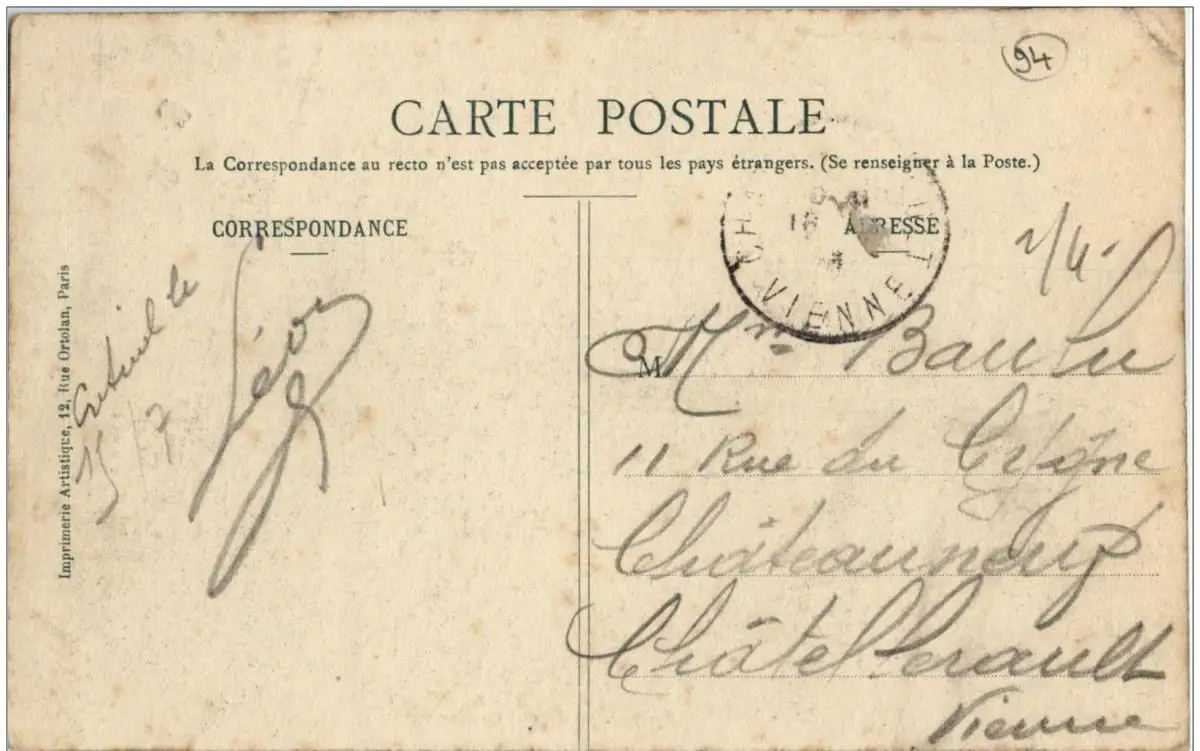 94
CARTE POSTALE
La Correspondance au recto n'est pas acceptée par tous les pays étrangers. (Se renseigner à la Poste.)
CORRESPONDANCE
ADRESSE
VIENNE
Imprimerie Artistique, 12, Rue Ortolan, Paris
Créteil le
Léon
M
Mme
11 Rue du Cygne
Châteauneuf
Châtellerault
Vienne